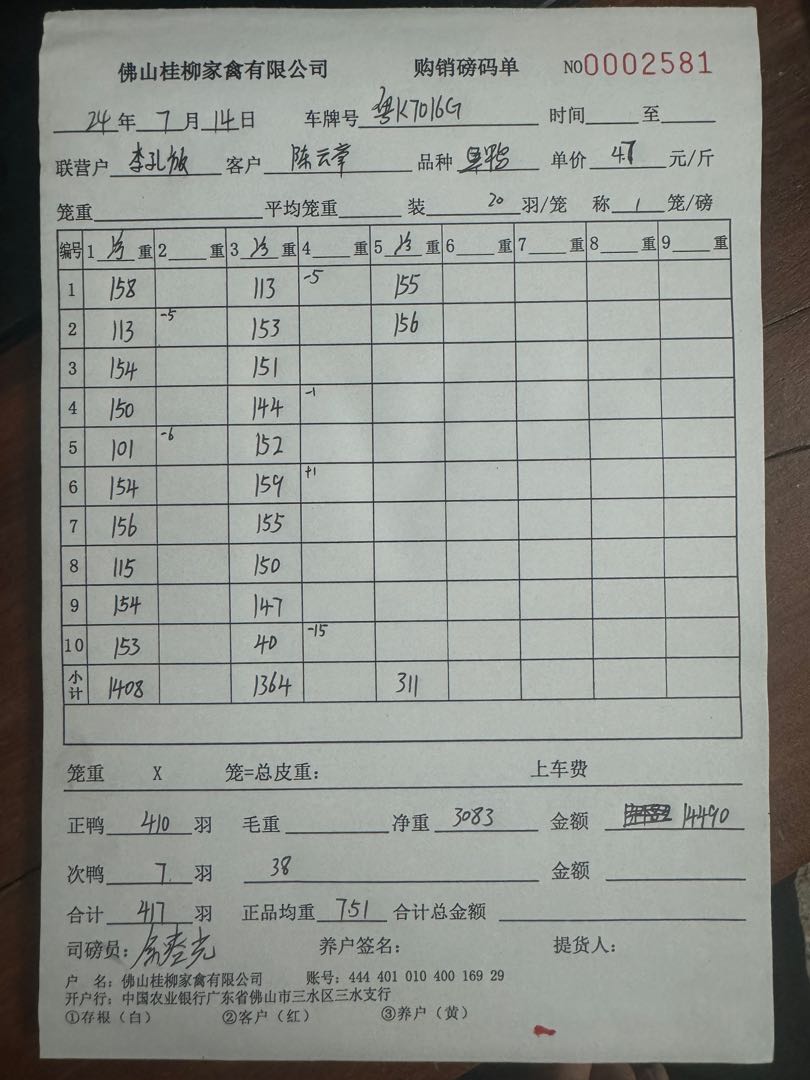 佛山桂柳家禽有限公司 购销磅码单 NO0002581
24年 7月14日 车牌号 粤K7016G 时间 至
联营户 李孔 客户 陈云章 品种 单价 4.7 元/斤
笼重 平均笼重 装 20 羽/笼 称 1 笼/磅
编号 1 重 2 重 3 重 4 重 5 重 6 重 7 重 8 重 9 重
1 158 113 -5 155
2 113 -5 153 156
3 154 151
4 150 144 -1
5 101 -6 152
6 154 159 +1
7 156 155
8 115 150
9 154 147
10 153 40 -15
小计 1408 1364 311
笼重 X 笼=总皮重: 上车费
正鸭 410 羽 毛重 净重 3083 金额 14490
次鸭 7 羽 38 金额
合计 417 羽 正品均重 7.51 合计总金额
司磅员: 养户签名: 提货人:
户 名: 佛山桂柳家禽有限公司 账号: 444 401 010 400 169 29
开户行: 中国农业银行广东省佛山市三水区三水支行
①存根(白) ②客户(红) ③养户(黄)